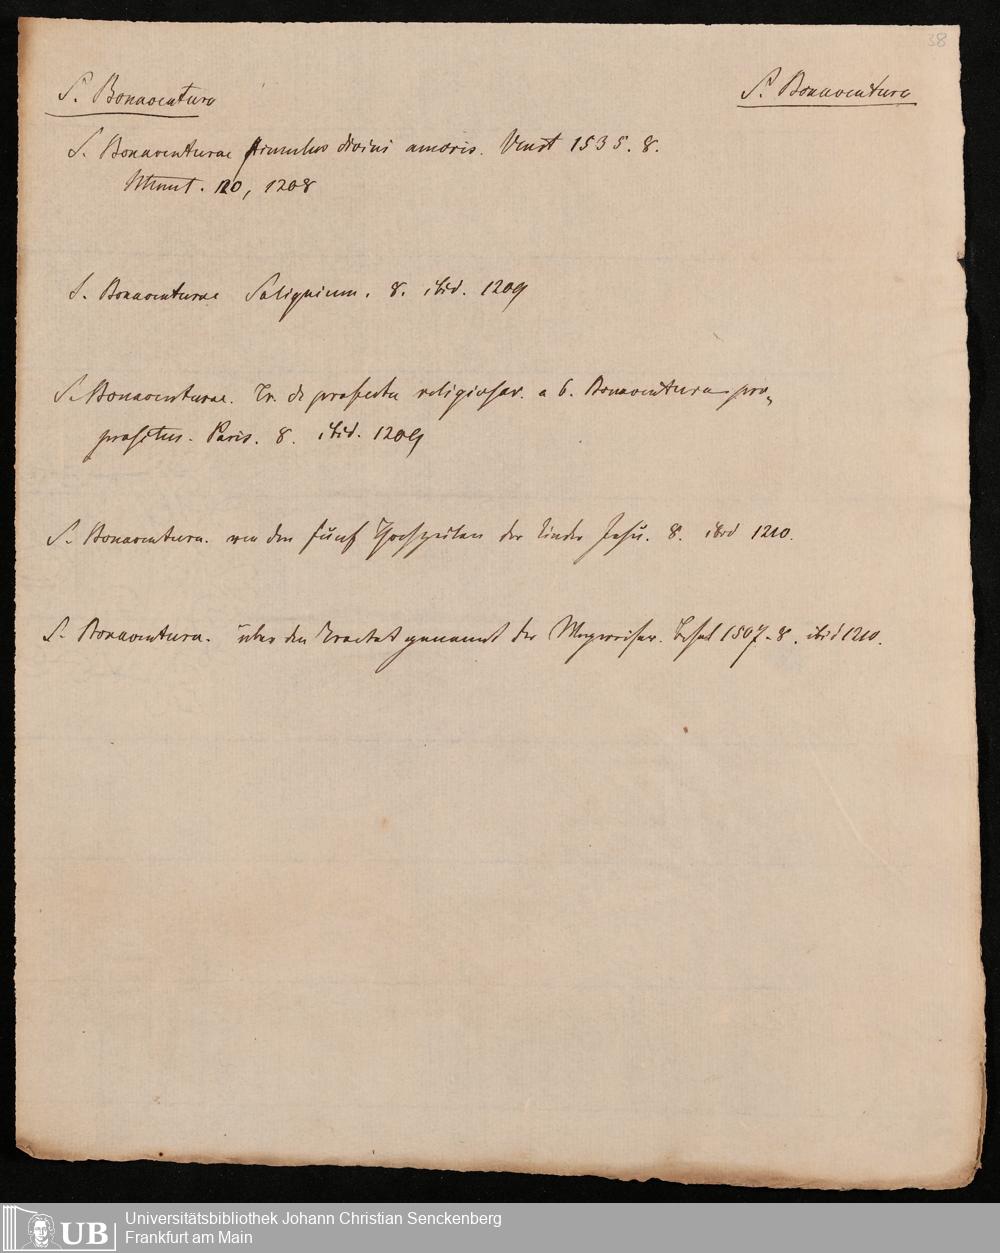 38
S. Bonaventura
S. Bonaventura
S. Bonaventurae stimulus divini amoris. Venet 1535. 8.
120, 1208
S. Bonaventurae Soliquium. 8. ibid. 1209
S. Bonaventurae. Tr. de profectu religiosor. a b. Bonaventura
Paris. 8. ibid. 1209
S. Bonaventura. von den fünf der Kinder Jesu. 8. ibid 1210.
S. Bonaventura. über den Tractat genannt der 1507. 8. ibid 1210.
UB
Universitätsbibliothek Johann Christian Senckenberg
Frankfurt am Main